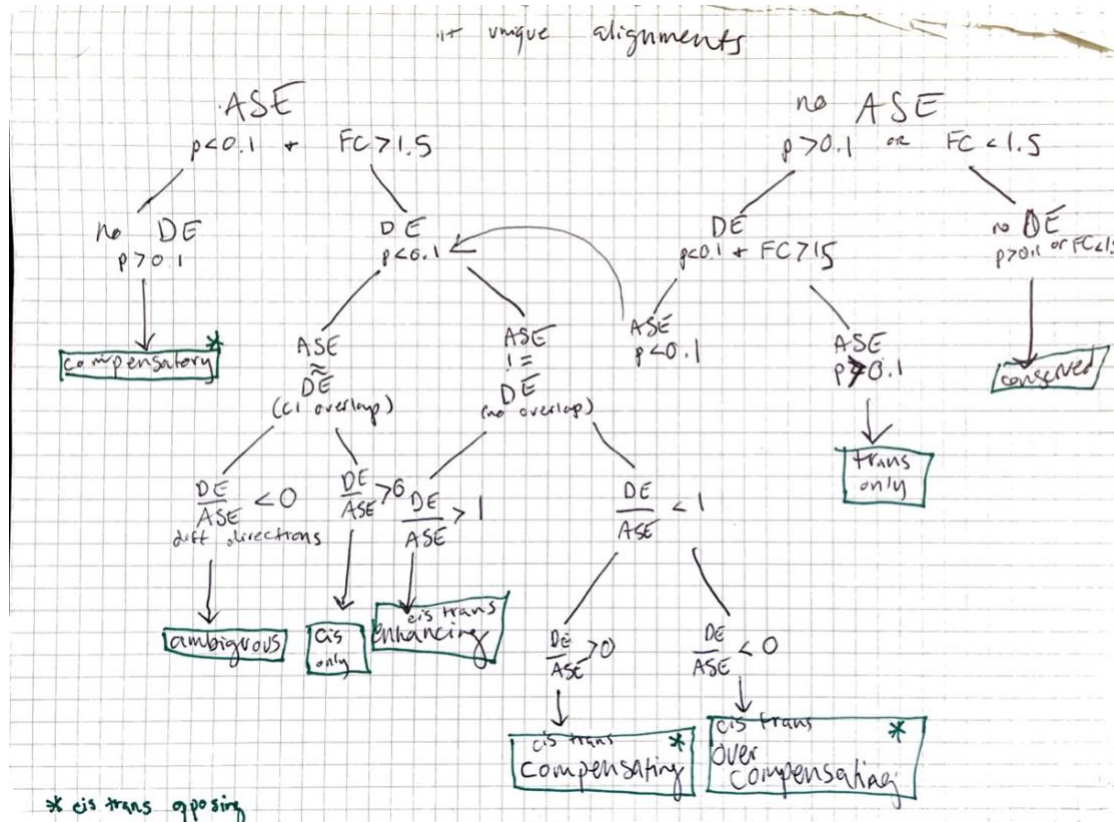 unique alignments
ASE
p<0.1 + FC>1.5
no ASE
p>0.1 or FC<1.5
no DE
p>0.1
DE
p<0.1
DE
p<0.1 + FC>1.5
no DE
p>0.1 or FC<1.5
compensatory*
ASE
≈
DE
(CI overlap)
ASE
!=
DE
(no overlap)
ASE
p<0.1
ASE
p>0.1
conserved
trans
only
DE
ASE <0
diff directions
DE
ASE >0
DE
ASE >1
DE
ASE <1
ambiguous
cis
only
cis trans
enhancing
DE
ASE >0
DE
ASE <0
cis trans *
compensating
cis trans *
over
compensating
* cis trans opposing